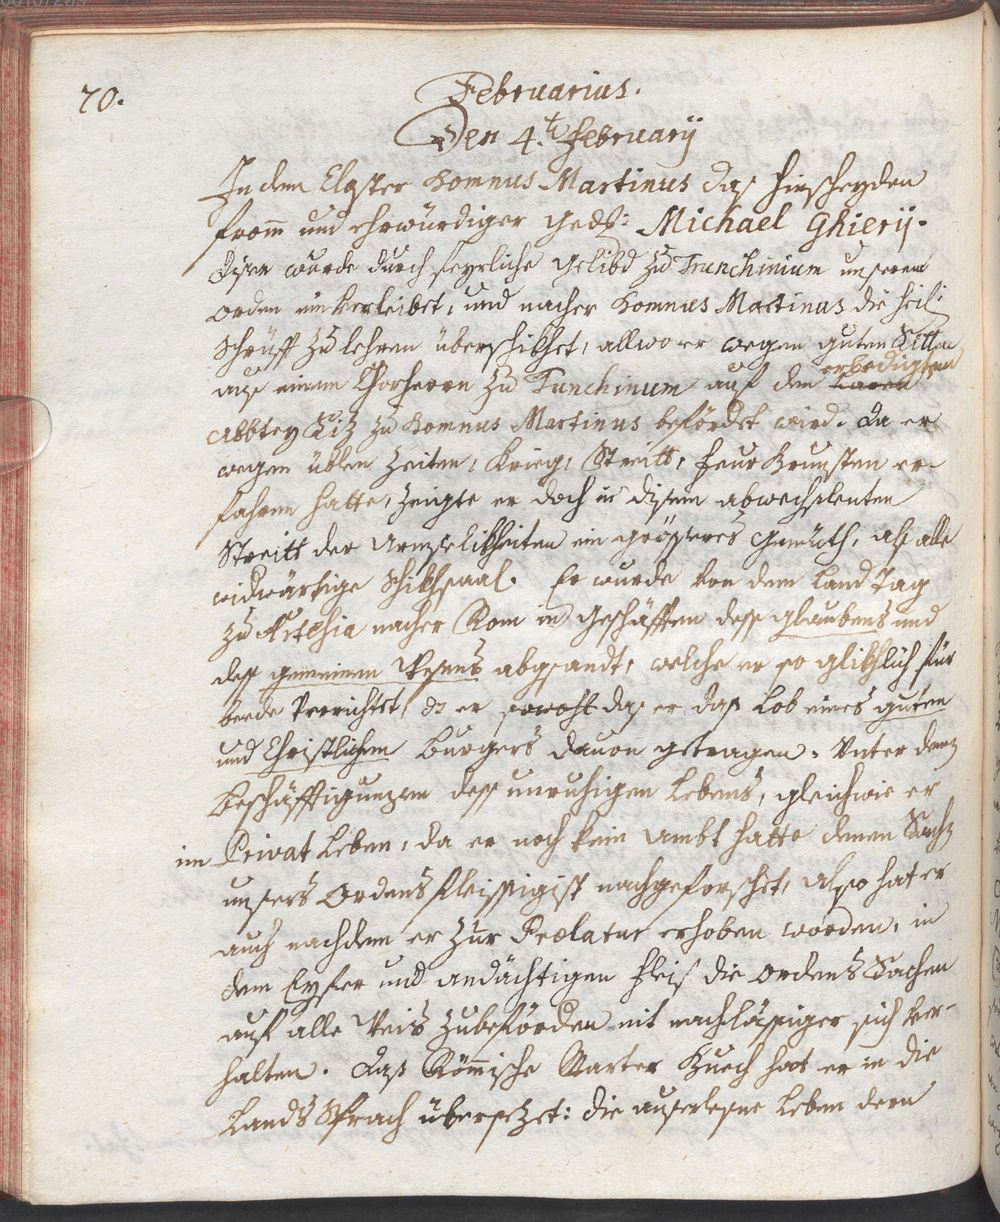 70.
Februarius.
Den 4.t February
In dem Closter Homnus Martinus das hinscheyden
from und ehrwürdiger ged: Michael Ghierij.
Diser wurde durch feyrliche gelibd zu Trunchinium unserem
orden einverleibet, und nacher Homnus Martinus die heil:
Schrüfft zu lehren überschikhet, allwo er wegen guten Sitten
aus einem Chorherrn zu Tunchinum auf den erledigten
Abbtey Siz zu Homnus Martinus befördet wird. Da er
wegen üblen Zeiten, Krieg, Streitt, feur brunsten er-
fahren hatte, zeigte er doch in disem abwechslenten
Streitt der Armseelikheiten ein grösseres gemüth, als alle
widwärtige schikhsaal. Er wurde von dem Land Tag
zu nacher Rom in geschäfften dess glaubens und
dess gemeinen Wesens abgesandt, welche er so glikhlich für
beede verrichtet, das er das lob eines guten
und Christlichen burgers davon getragen. Unter denen
beschäfftigungen dess unruhigen Lebens, gleichwie er
im Privat Leben, da er noch kein ambt hatte denen Sachen
unsers Ordens fleissigist nachgeforschet, also hat er
auch nachdem er zur Prælatur erhoben worden, in
dem Eyfer und andächtigen fleis die ordens Sachen
auf alle Weis zubefördern nit nachlässiger sich ver-
halten. Das Römische Marter buech hat er in die
Lands Sprach übersetzet: die auserlesne Leben deren